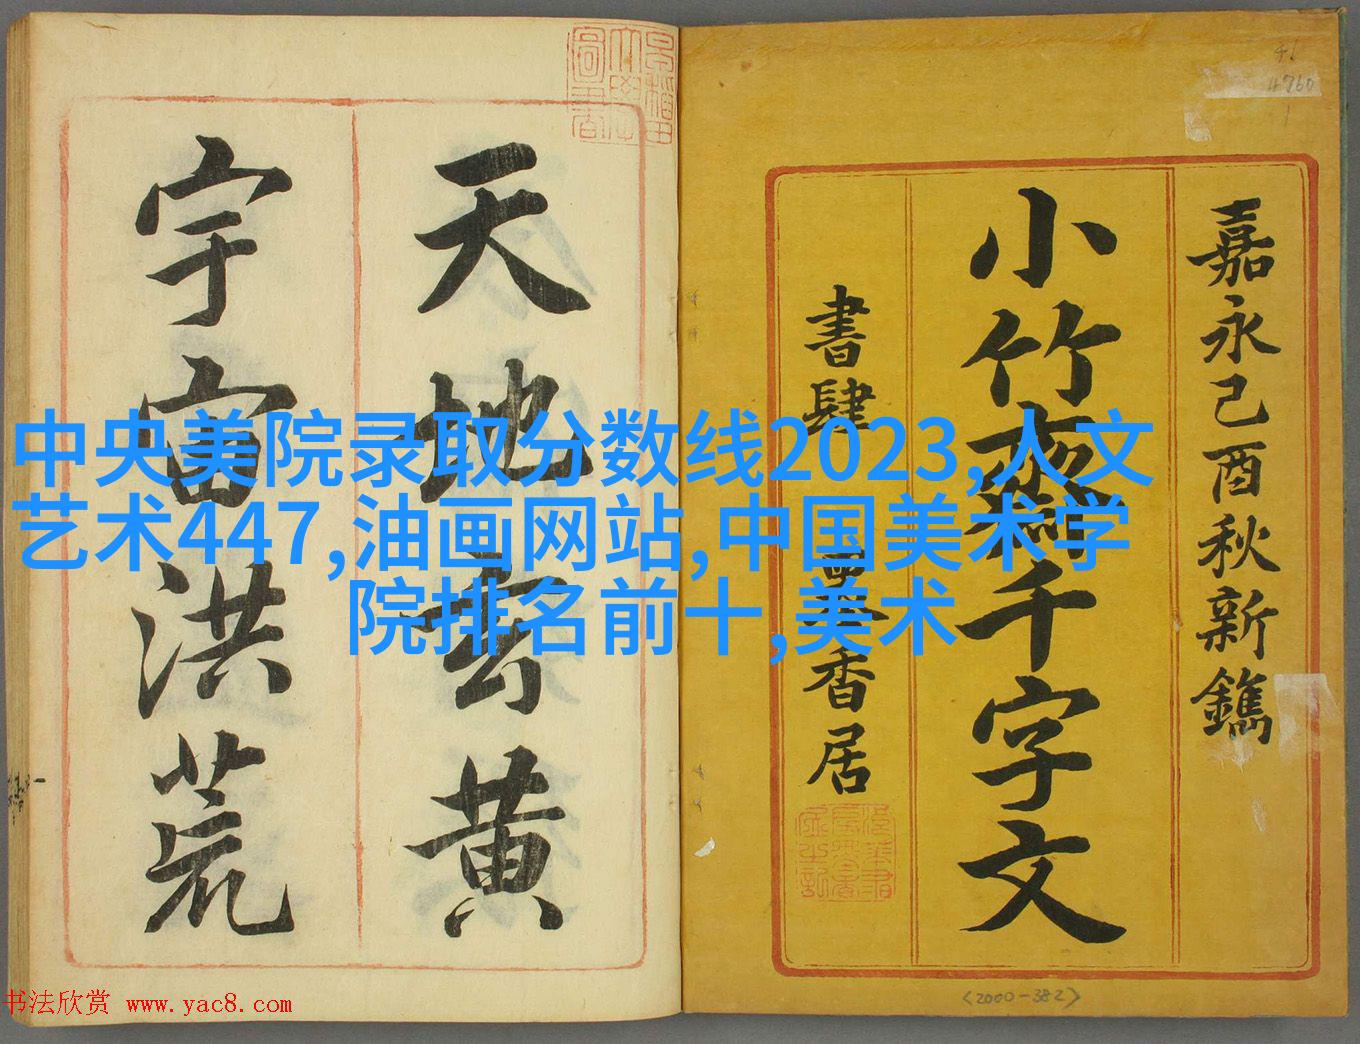 嘉永己酉秋新鐫
小竹齋千字文
書肆 墨香居
天地玄黃
宇宙洪荒
中央美院录取分数线2023,人文
艺术447,油画网站,中国美术学
院排名前十,美术
46
4760
<2000-382>
书法欣赏 www.yac8.com